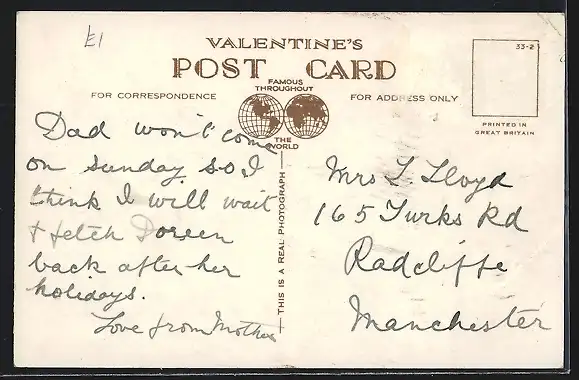 £1
VALENTINE'S
POST CARD
FAMOUS
THROUGHOUT
THE
WORLD
FOR CORRESPONDENCE
FOR ADDRESS ONLY
33-2
PRINTED IN
GREAT BRITAIN
THIS IS A REAL PHOTOGRAPH
Dad won't come
on sunday so I
think I will wait
& fetch Doreen
back after her
holidays.
Love from Mother
Mrs L. Lloyd
165 Turks Rd
Radcliffe
Manchester